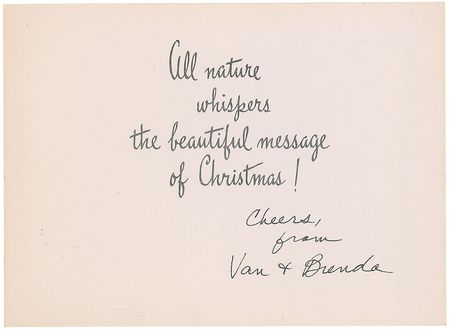 All nature
whispers
the beautiful message
of Christmas!
Cheers,
from
Van & Brenda